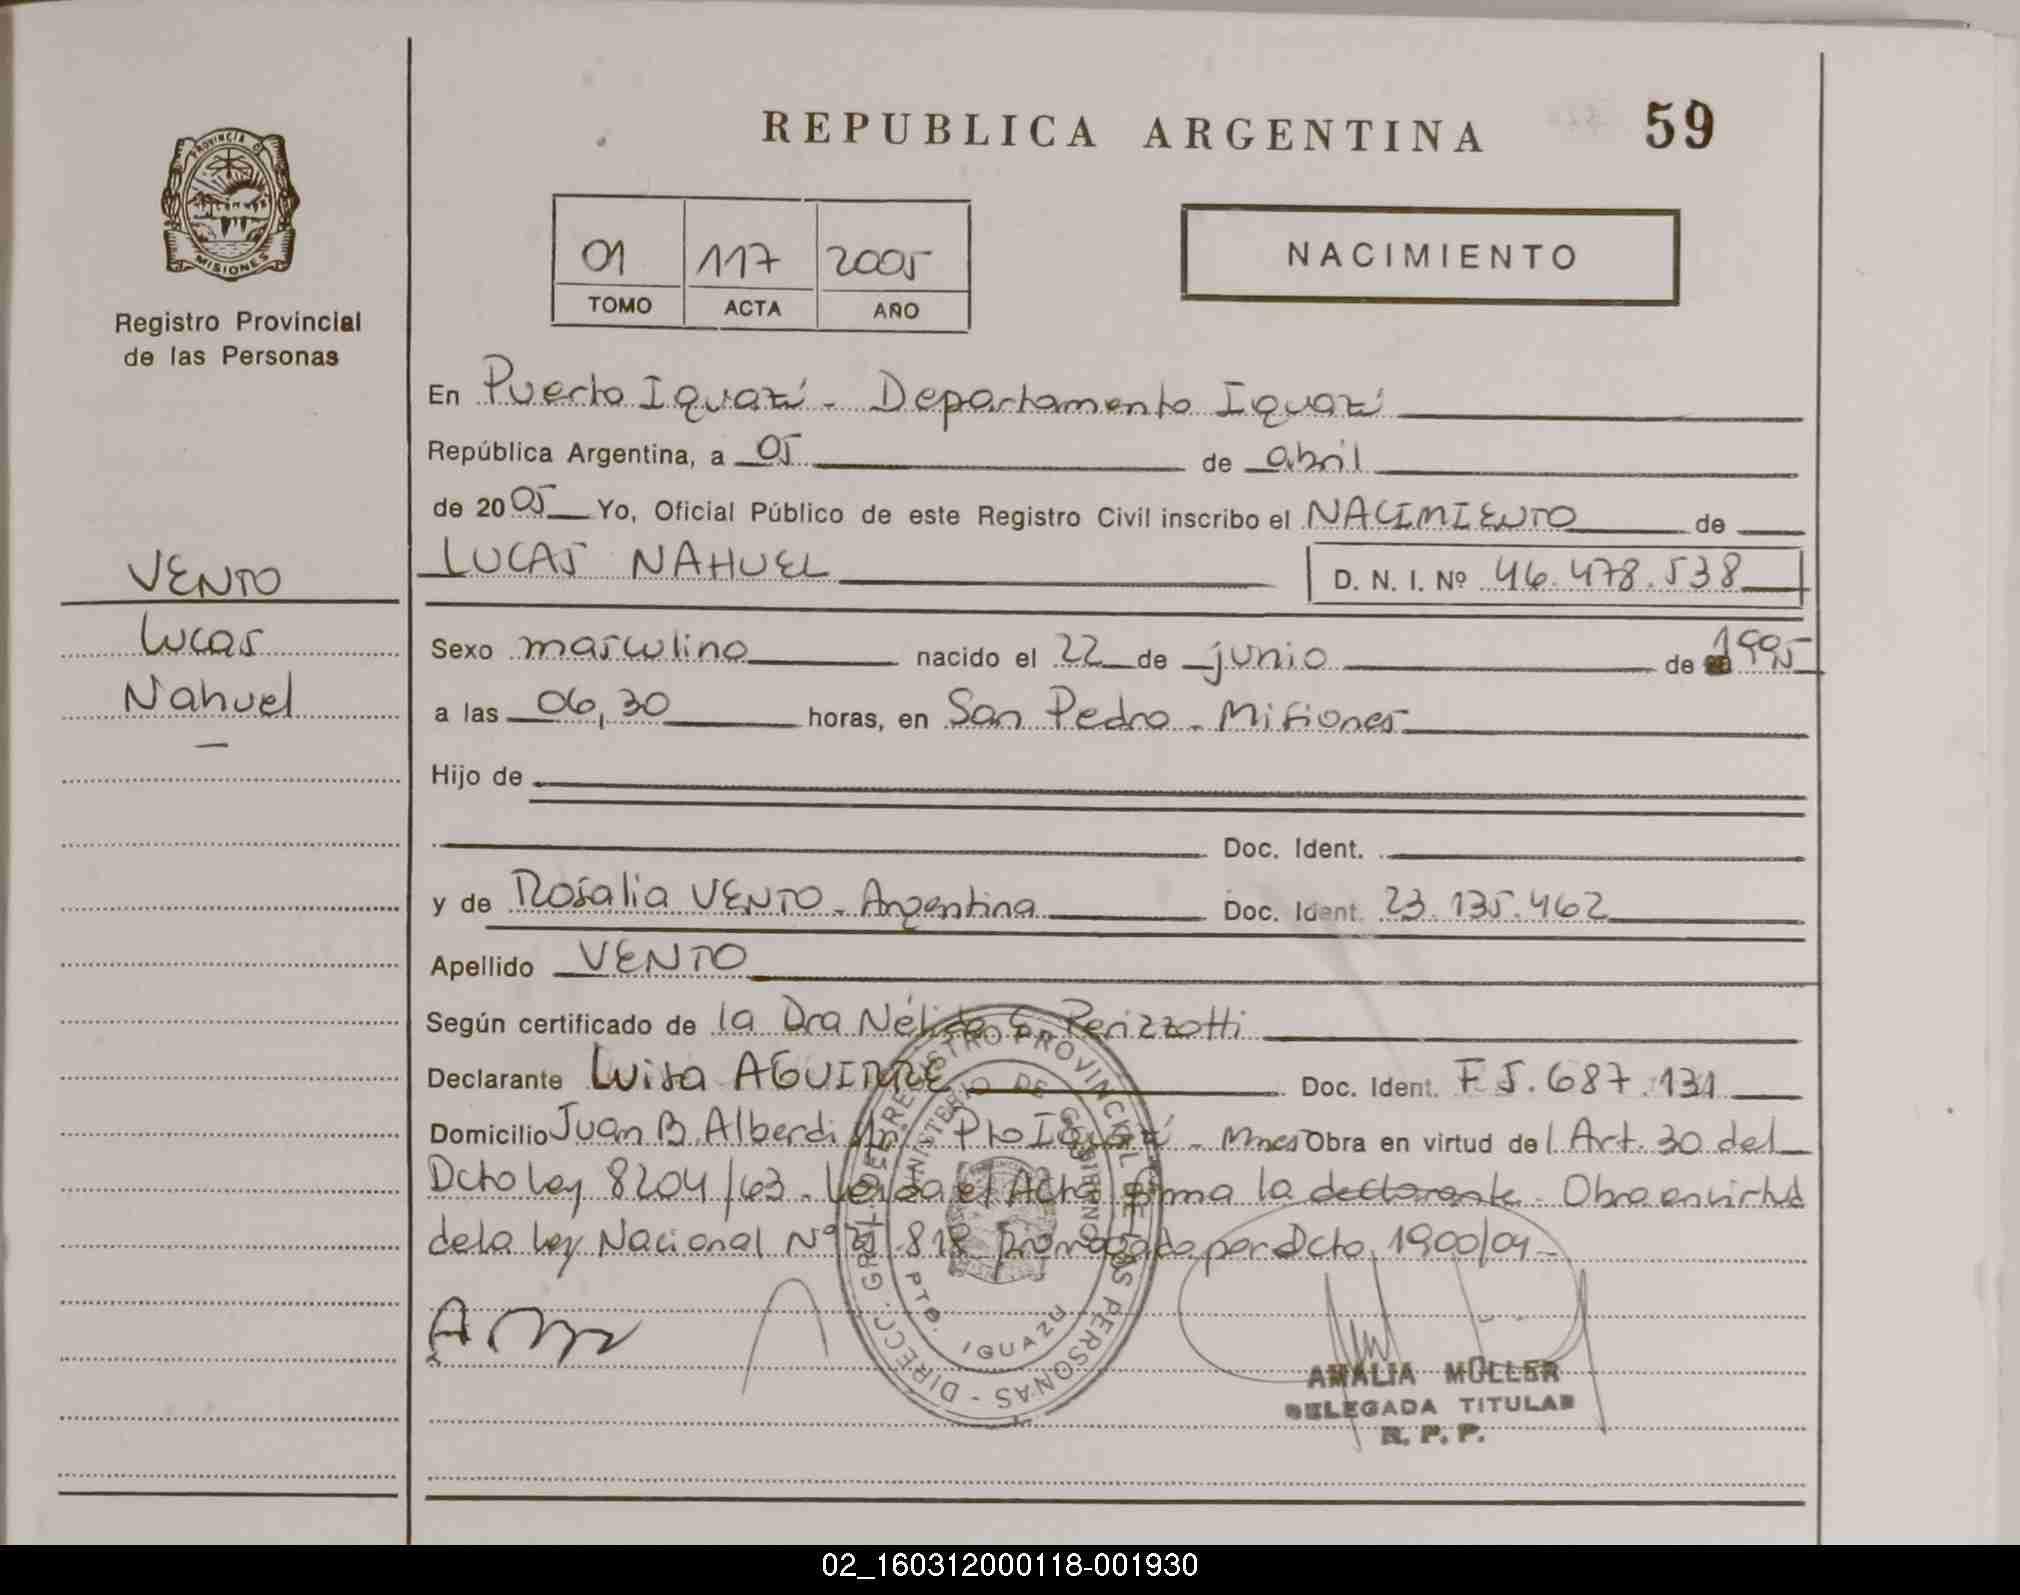 REPUBLICA ARGENTINA
59
PROVINCIA DE
MISIONES
Registro Provincial
de las Personas
01 117 2005
TOMO ACTA AÑO
NACIMIENTO
En Puerto Iguazú - Departamento Iguazú
República Argentina, a 05 de abril
de 2005 Yo, Oficial Público de este Registro Civil inscribo el NACIMIENTO de
LUCAS NAHUEL D. N. I. Nº 46.478.538
VENTO
Lucas
Nahuel
Sexo masculino nacido el 22 de junio de 1995
a las 06,30 horas, en San Pedro - Misiones
Hijo de
Doc. Ident.
y de Rosalia VENTO - Argentina Doc. Ident. 23.135.462
Apellido VENTO
Según certificado de la Dra Nélida E. Perizzotti
Declarante Luisa AGUIRRE Doc. Ident. F 5.687.131
Domicilio Juan B. Alberdi Pto Iguazú - Mnes Obra en virtud del Art. 30 del
Dcto Ley 8204/63. Leída el Acta firma la declarante - Obra en virtud
de la Ley Nacional Nº 818 Prorrogado por Dcto. 1900/04 -
DIRECC. GRAL. DEL REGISTRO PROVINCIAL DE LAS PERSONAS -
MINISTERIO DE GOBIERNO
PTO. IGUAZU
AMALIA MÜLLER
DELEGADA TITULAR
R. P. P.
02_160312000118-001930